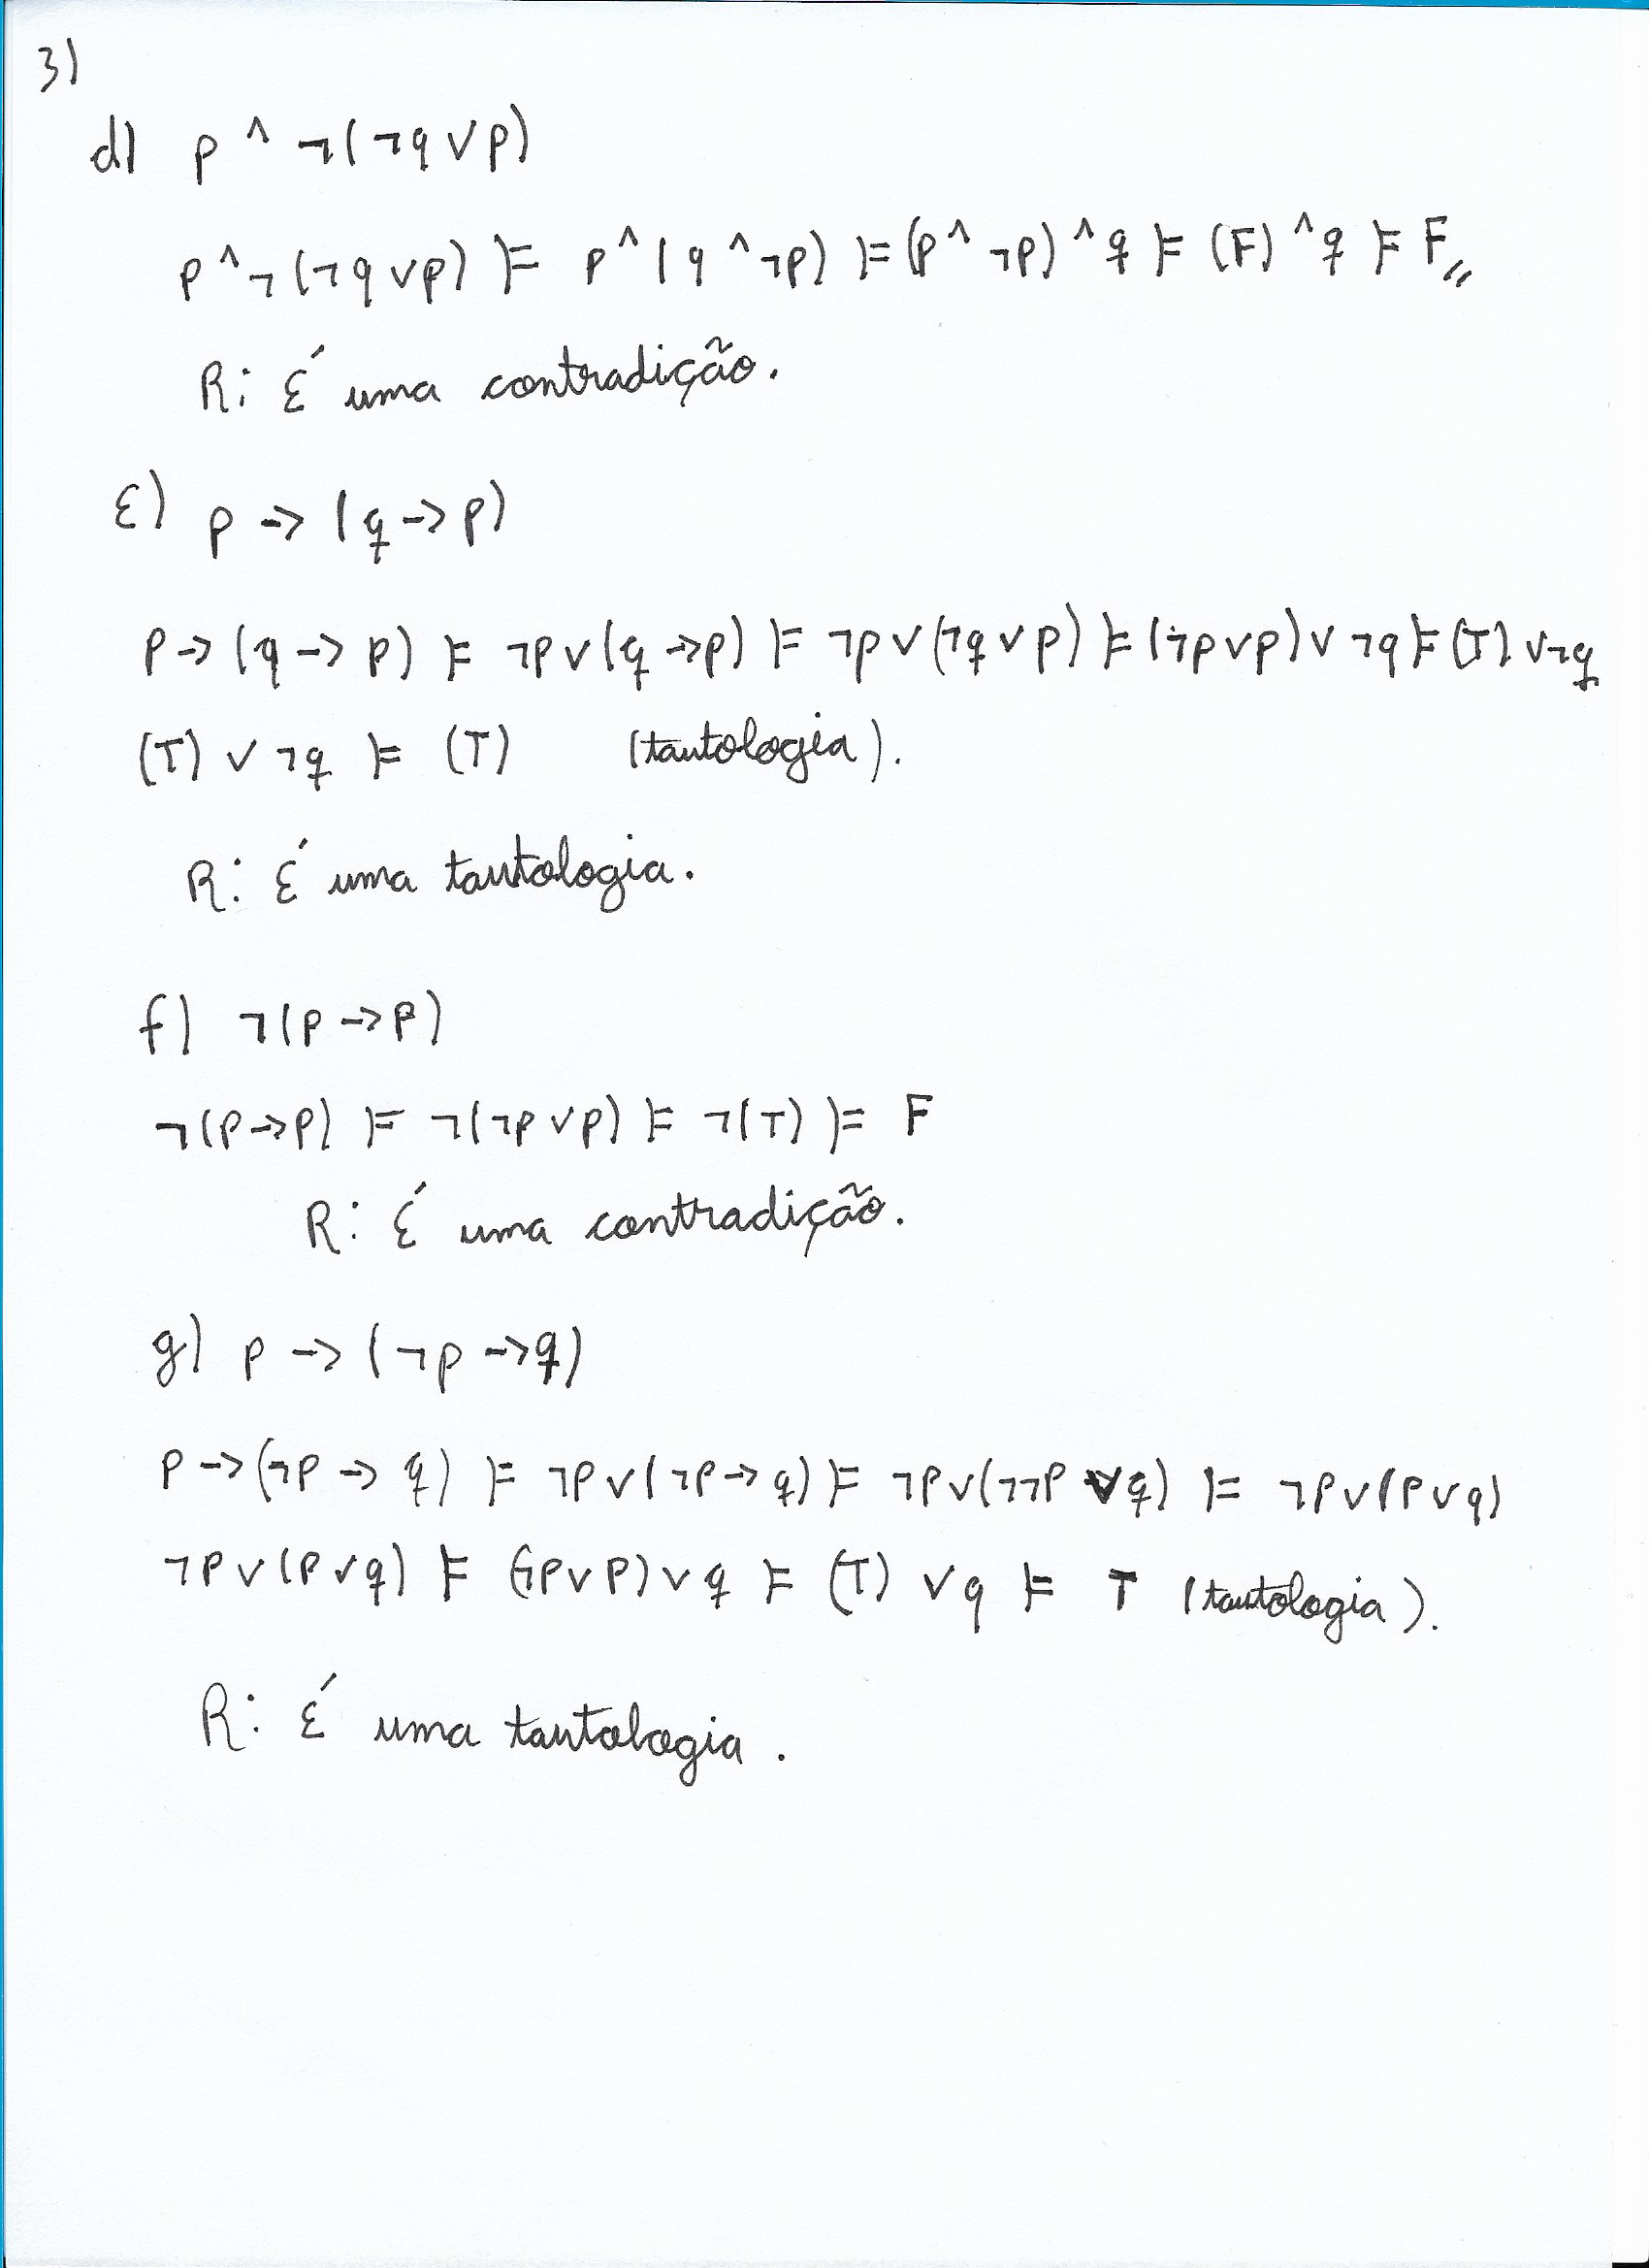 3)
d) p ^ ¬(¬q ∨ p)
p ^ ¬(¬q ∨ p) ⊨ p ^ (q ^ ¬p) ⊨ (p ^ ¬p) ^ q ⊨ (F) ^ q ⊨ F //
R: É uma contradição.
E) p -> (q -> p)
p -> (q -> p) ⊨ ¬p ∨ (q -> p) ⊨ ¬p ∨ (¬q ∨ p) ⊨ (¬p ∨ p) ∨ ¬q ⊨ (T) ∨ ¬q
(T) ∨ ¬q ⊨ (T) (tautologia).
R: É uma tautologia.
f) ¬(p -> p)
¬(p -> p) ⊨ ¬(¬p ∨ p) ⊨ ¬(T) ⊨ F
R: É uma contradição.
g) p -> (¬p -> q)
p -> (¬p -> q) ⊨ ¬p ∨ (¬p -> q) ⊨ ¬p ∨ (¬¬p ∨ q) ⊨ ¬p ∨ (p ∨ q)
¬p ∨ (p ∨ q) ⊨ (¬p ∨ p) ∨ q ⊨ (T) ∨ q ⊨ T (tautologia).
R: É uma tautologia.